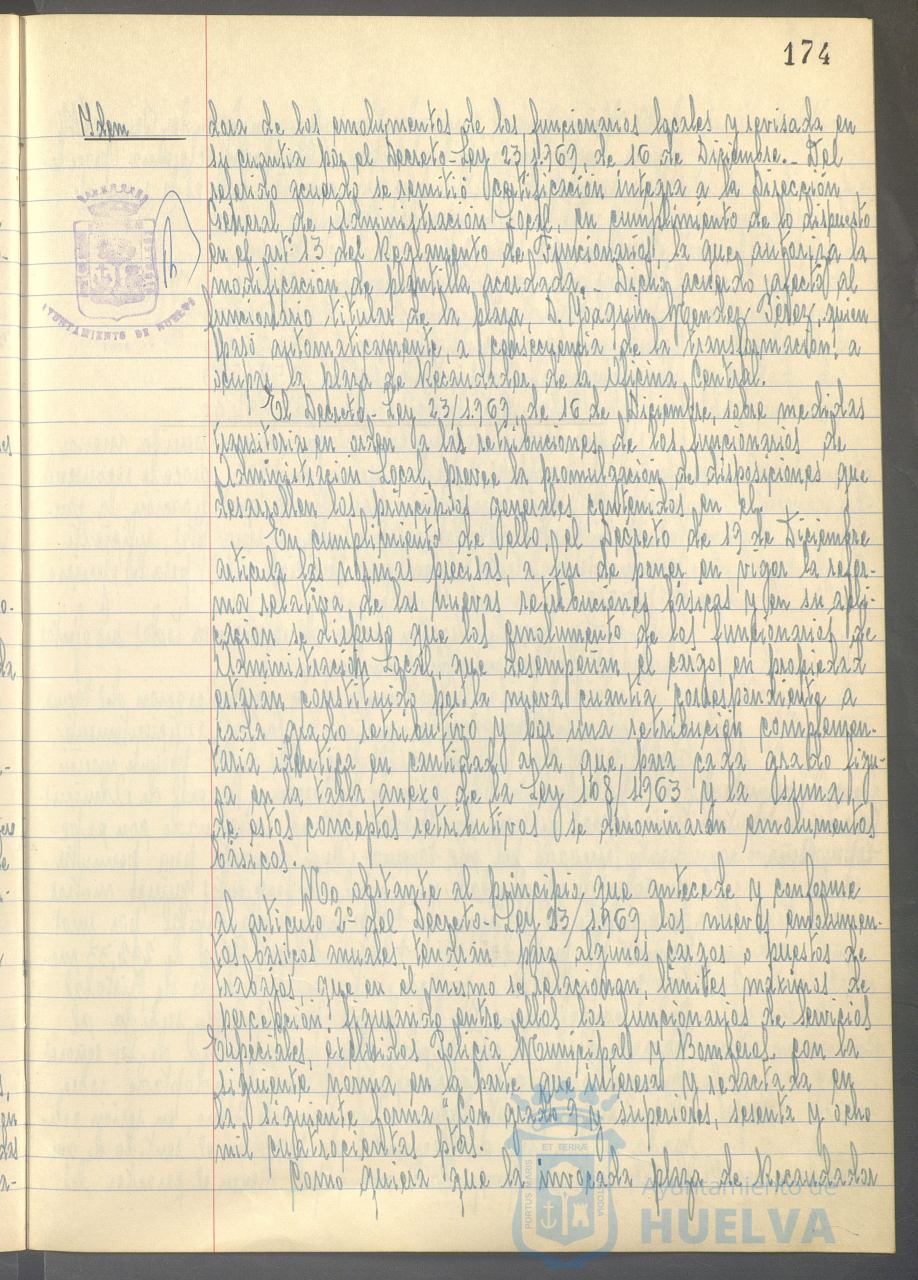 174
Idem
dora de los emolumentos de los funcionarios locales y revisada en
su cuantía por el Decreto-Ley 23/1.969, de 16 de Diziembre.- Del
referido acuerdo se remitió certificación íntegra a la Dirección
General de Administración Local, en cumplimiento de lo dispuesto
en el artº 13 del Reglamento de Funcionarios, la que autoriza la
modificación de plantilla acordada.- Dicho acuerdo afecta al
funcionario titular de la plaza, D. Joaquín Mendez Pérez, quien
pasó automáticamente, a consecuencia de la transformación, a
ocupar la plaza de Recaudador de la Oficina Central.
El Decreto-Ley 23/1.969, de 16 de Diciembre, sobre medidas
transitoria en orden a las retribuciones de los funcionarios de
Administración Local, prevee la promulgación de disposiciones que
desarrollen los principios generales contenidos en el.
En cumplimiento de ello, el Decreto de 19 de Diciembre
articula las normas precisas, a fin de poner en vigor la refor-
ma relativa de las nuevas retribuciones básicas y en su apli-
cación se dispuso que los emolumento de los funcionarios de
Administración Local, que desempeñan el cargo en propiedad
estarán constituido por la nueva cuantía correspondiente a
cada grado retributivo y por una retribución complemen-
taria identica en cantidad a la que para cada grado figu-
ra en la tabla anexo de la Ley 108/1.963 y la suma
de estos conceptos retributivos se denominarán emolumentos
básicos.
No obstante al principio que antecede y conforme
al artículo 2º del Decreto-Ley 23/1.969, los nuevos emolumen-
tos básicos anuales tendrán para algunos cargos o puestos de
trabajos, que en el mismo se relacionan, límites máximos de
percepción figurando entre ellos los funcionarios de Servicios
Especiales, excluidos Policía Municipal y Bomberos con la
siguiente norma en la parte que interesa y redactada en
la siguiente forma "Con grado y superiores, sesenta y ocho
mil cuatrocientas ptas.
Como quiera que la invocada plaza de Recaudador
AYUNTAMIENTO DE HUELVA
PORTUS MARIS
ET TERRÆ
CUSTODIA
Ayuntamiento de
HUELVA